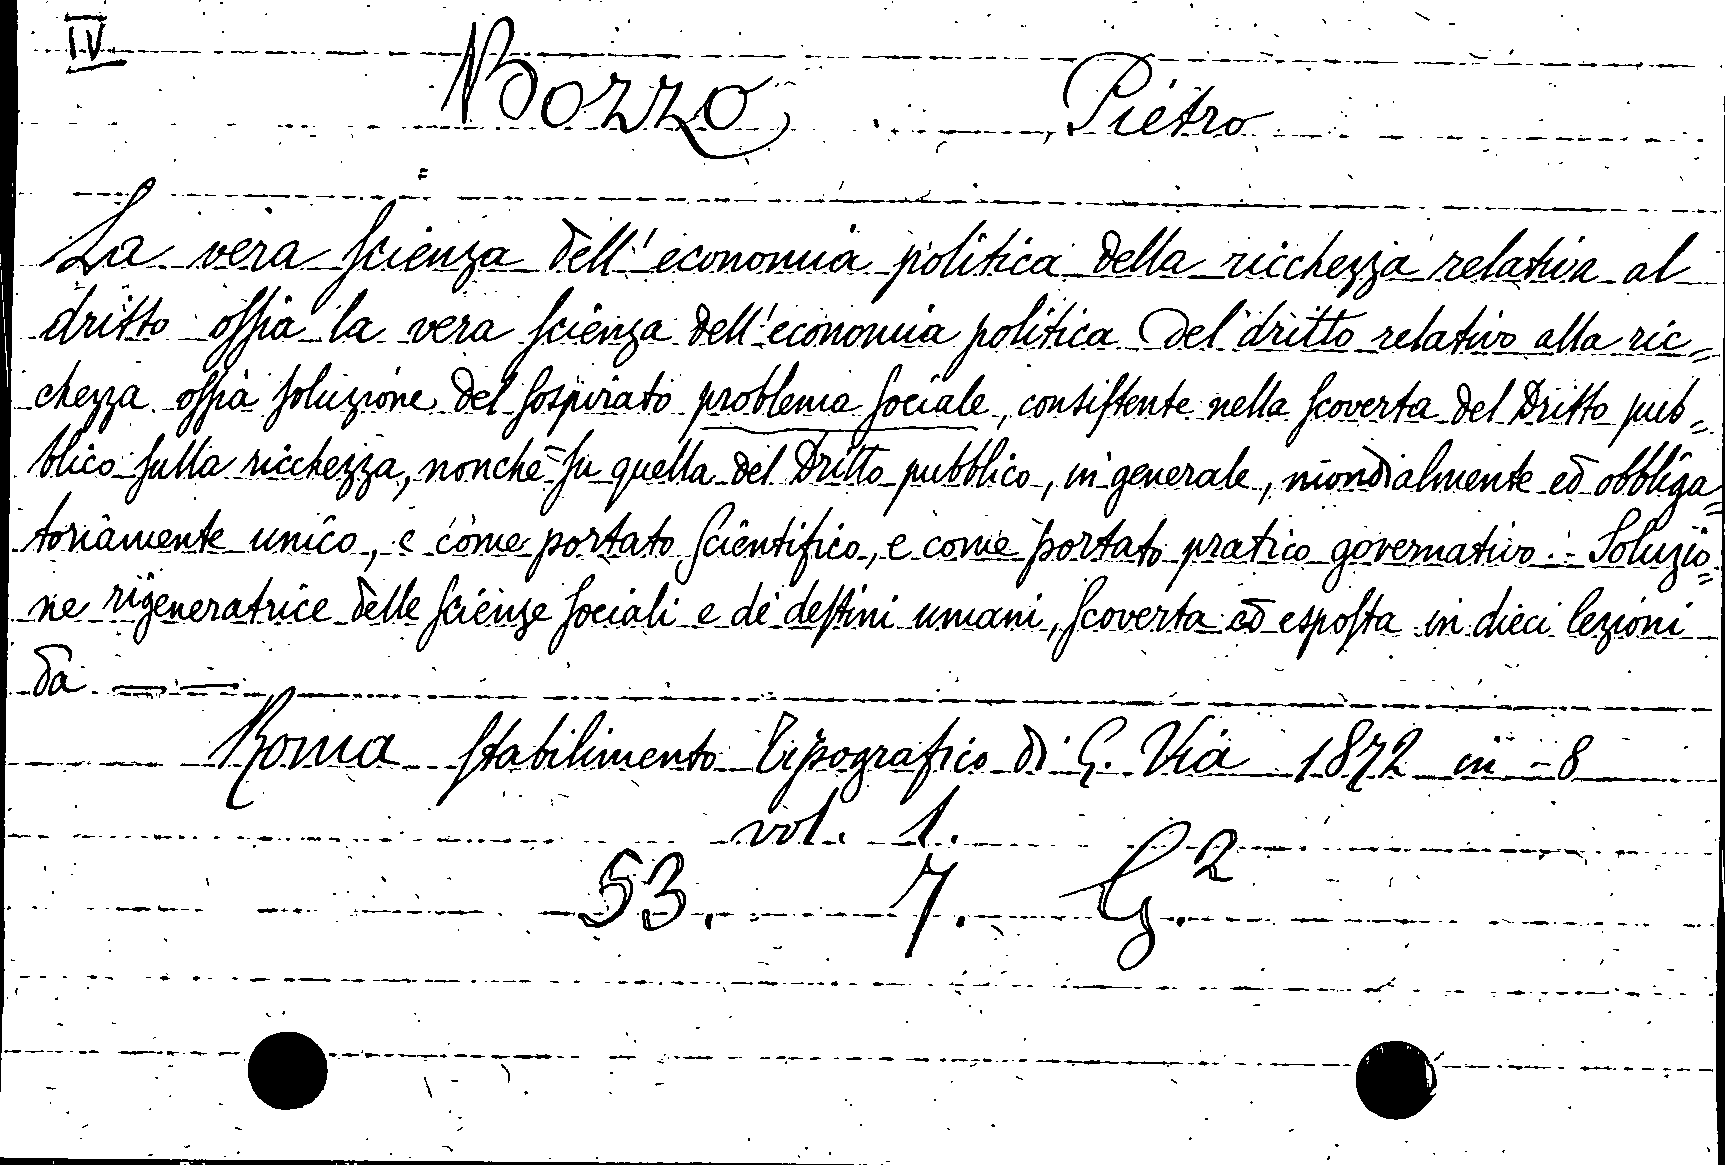 IV
Bozzo Pietro
La vera scienza dell'economia politica della ricchezza relativa al
dritto ossia la vera scienza dell'economia politica del dritto relativo alla ric=
chezza ossia soluzione del sospirato problema sociale, consistente nella scoverta del Dritto pub=
blico sulla ricchezza, nonchè su quella del Dritto pubblico, in generale, mondialmente ed obbliga=
toriamente unico, e come portato scientifico, e come portato pratico governativo. - Soluzio=
ne rigeneratrice delle scienze sociali e dei destini umani, scoverta ed esposta in dieci lezioni
da — —
Roma stabilimento tipografico di G. Via 1872 in-8
vol. 1.
53. 7. G.2